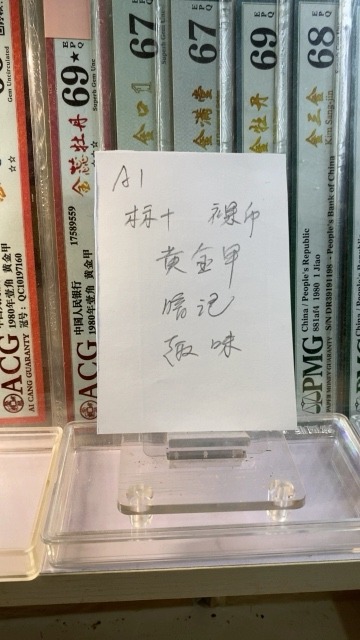 AI
标十 裸币
黄金甲
暗记
趣味
Gem Uncirculated
69★
EPQ
Superb Gem Unc
金蕊牡丹
ACG
AI CANG GUARANTY
1980年壹角 黄金甲
冠号：QC10197160
ACG
中国人民银行
1980年壹角 黄金甲
17589559
67
EPQ
金满堂
69
EPQ
金牡丹
68
EPQ
Kim Sang-jin
PMG
China / People's Republic
PMG
China / People's Republic
881af4 1980 1 Jiao
S/N DR83191198 - People's Bank of China
PAPER MONEY GUARANTY